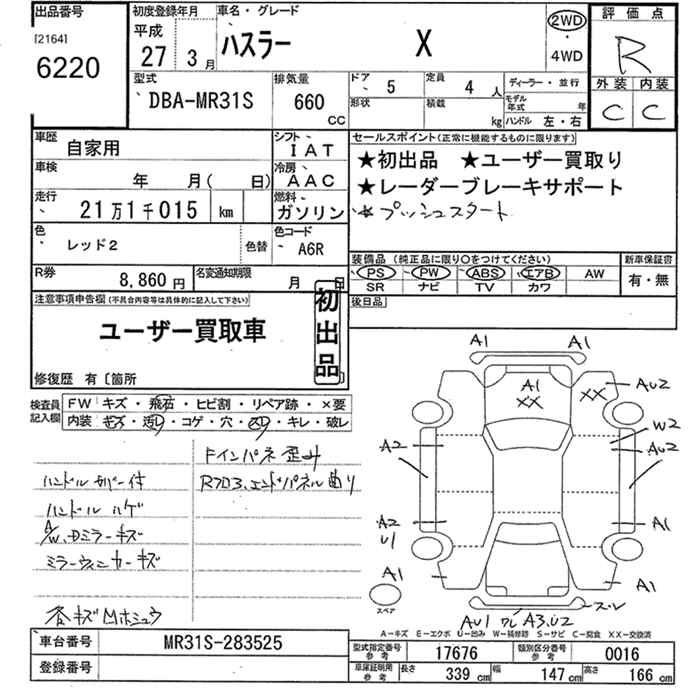 出品番号
[2164]
6220
初度登録年月
平成
27 3 月
車名・グレード
ハスラー X
2WD
・
4WD
評価点
R
外装 内装
C C
型式
DBA-MR31S
排気量
660
CC
ドア 5
定員 4 人
形状
積載 kg
ディーラー・並行
モデル年式 年
ハンドル 左・右
車歴
自家用
シフト
IAT
車検
年 月( 日)
冷房
AAC
走行
21万1千015 km
燃料
ガソリン
色
レッド2
色替
色コード
A6R
R券
8,860円
名変通知期限
月 日
セールスポイント(正常に機能するものに限ります)
★初出品 ★ユーザー買取り
★レーダーブレーキサポート
プッシュスタート
装備品(純正品に限り○をつけてください)
PS PW ABS エアB AW
SR ナビ TV カワ
新車保証書
有・無
後日品
注意事項申告欄(不具合内容等は具体的に記入して下さい)
ユーザー買取車
初出品
修復歴 有〔箇所
検査員記入欄
FW キズ・飛石・ヒビ割・リペア跡・×要
内装 キズ・汚レ・コゲ・穴・スレ・キレ・破レ
ドインパネ歪み
ハンドルカバー付
Rフロア、エンドパネル曲り
ハンドルハゲ
A/W、Dミラーキズ
ミラーウィンカーキズ
A1 A1
A1
XX
XX
AU2
W2
AU2
A2
A2
U1
A1
A1
A1
スペア
AU1 ワレ A3、U2
A−キズ E−エクボ U−凹み W−補修跡 S−サビ C−腐食 XX−交換済
車台番号
MR31S-283525
登録番号
型式指定番号
参考
17676
類別区分番号
参考
0016
車庫証明用
参考
長さ 339 cm
幅 147 cm
高さ 166 cm